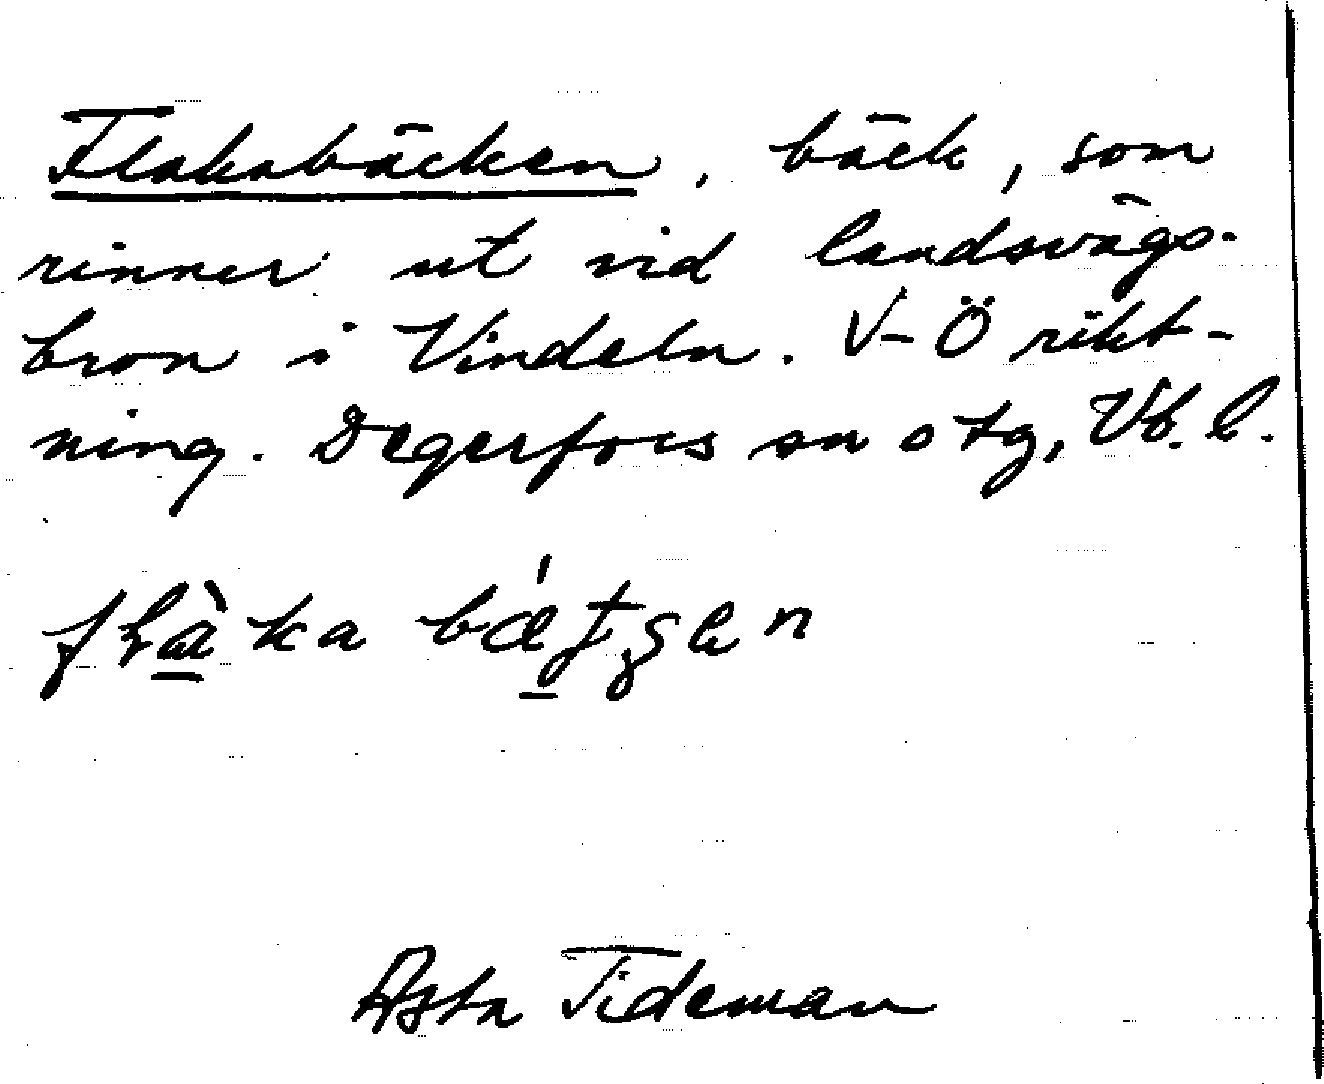 Flakabäcken, bäck, som
rinner ut vid landsvägs-
bron i Vindeln. V-Ö rikt-
ning. Degerfors sn o tg, Vb. l.
Asta Tideman